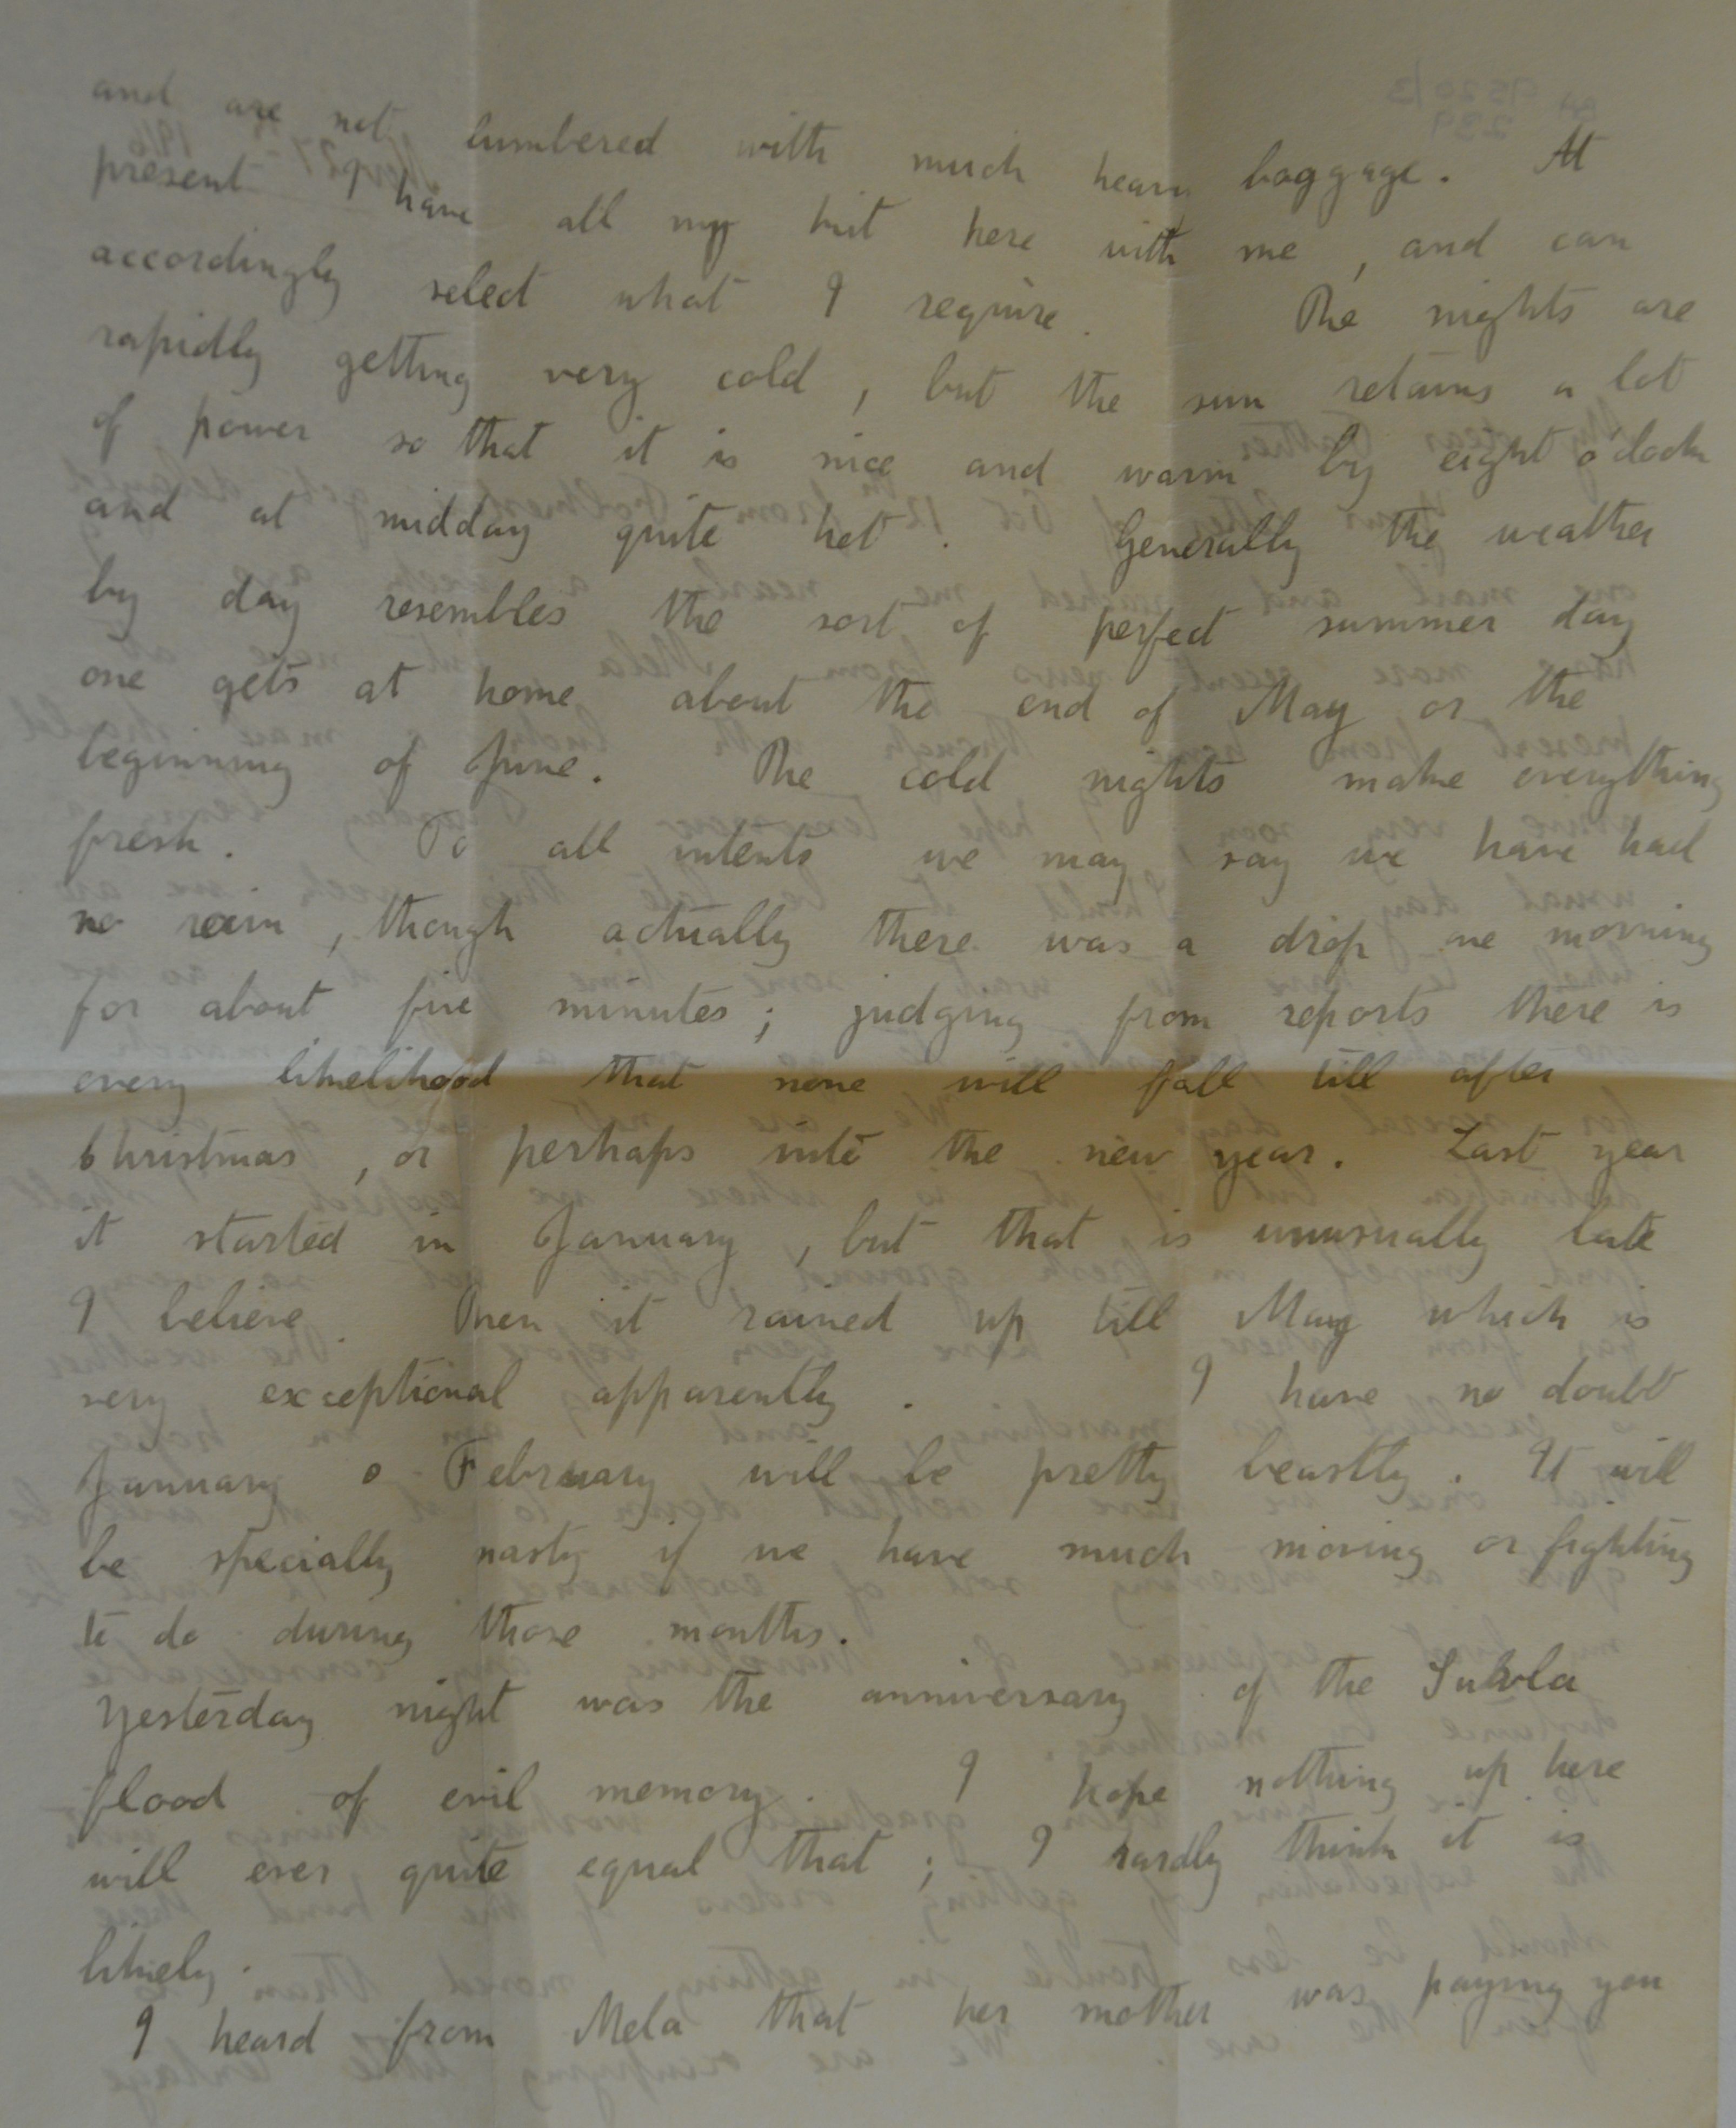 and are not cumbered with much heavy baggage. At
present I have all my kit here with me, and can
accordingly select what I require. The nights are
rapidly getting very cold, but the sun retains a lot
of power so that it is nice and warm by eight o'clock
and at midday quite hot. Generally the weather
by day resembles the sort of perfect summer day
one gets at home about the end of May or the
beginning of June. The cold nights make everything
fresh. To all intents we may say we have had
no rain, though actually there was a drop one morning
for about five minutes; judging from reports there is
every likelihood that none will fall till after
Christmas, or perhaps into the new year. Last year
it started in January, but that is unusually late
I believe. Then it rained up till May which is
very exceptional apparently. I have no doubt
January & February will be pretty beastly. It will
be specially nasty if we have much moving or fighting
to do during those months.
Yesterday night was the anniversary of the Suvla
flood of evil memory. I hope nothing up here
will ever quite equal that; I hardly think it is
likely.
I heard from Mela that her mother was paying you